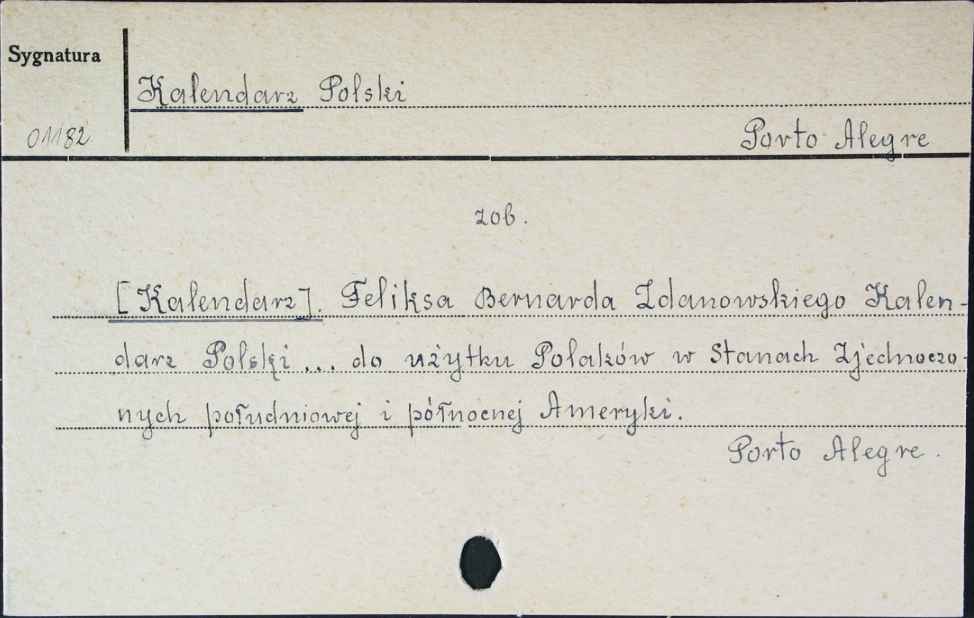 Sygnatura
Kalendarz Polski
01182
Porto Alegre
zob.
[Kalendarz]. Feliksa Bernarda Zdanowskiego Kalen-
darz Polski ... do użytku Polaków w Stanach Zjednoczo-
nych południowej i północnej Ameryki.
Porto Alegre.